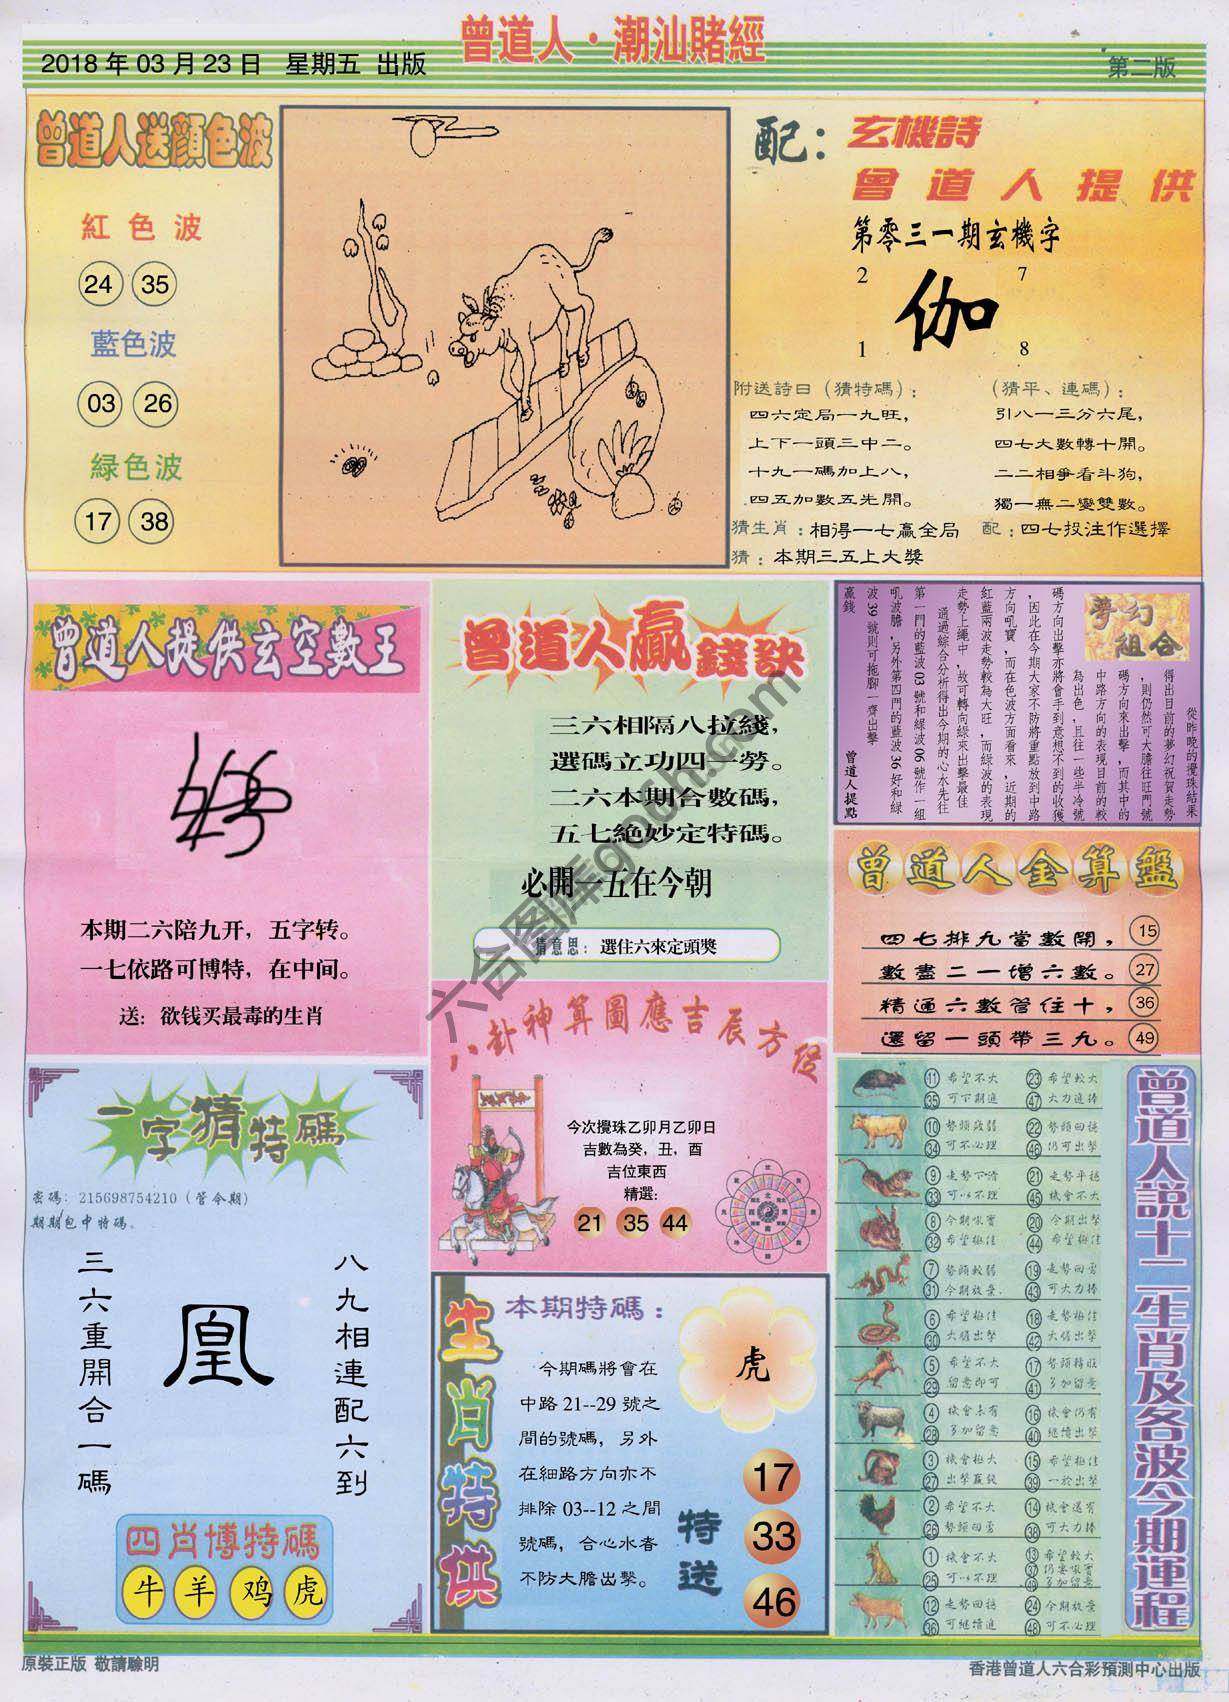 曾道人·潮汕賭經
2018年03月23日 星期五 出版
第二版
曾道人送顏色波
紅色波
24 35
藍色波
03 26
緑色波
17 38
配:
玄機詩
曾道人提供
第零三一期玄機字
2 7
伽
1 8
附送詩曰(猜特碼):
四六定局一九旺,
上下一頭三中二。
十九一碼加上八,
四五加數五先開。
(猜平、連碼):
引八一三分六尾,
四七大數轉十開。
二二相爭看斗狗,
獨一無二變雙數。
猜生肖:相得一七贏全局
配:四七投注作選擇
猜:本期三五上大獎
曾道人提供玄空數王
本期二六陪九开,五字转。
一七依路可博特,在中间。
送:欲钱买最毒的生肖
曾道人贏錢訣
三六相隔八拉綫,
選碼立功四一勞。
二六本期合數碼,
五七絶妙定特碼。
必開一五在今朝
猜意思:選住六來定頭獎
夢幻組合
從昨晚的攪珠結果
得出目前的夢幻祝賀走勢
,則仍然可大膽往旺門號
碼方向來出擊,而其中的
中路方向的表現目前的較
為出色,且往一些半冷號
碼方向出擊亦將會手到意想不到的收獲
,因此在今期大家不防將重點放到中路
方向吼寶,而在色波方面看來,近期的
紅藍兩波走勢較為大旺,而綠波的表現
走勢上繩中,故可轉向綠來出擊最佳
通過綜合分析得出今期的心水先往
第一門的藍波03號和綠波06號作一組
吼波膽,另外第四門的藍波36好和綠
波39號則可拖腳一齊出擊
贏錢
曾道人提點
曾道人金算盤
四七排九當數開, 15
數盡二一增六數。 27
精通六數管住十, 36
還留一頭帶三九。 49
八卦神算圖應吉辰方位
今次攪珠乙卯月乙卯日
吉數為癸,丑,酉
吉位東西
精選:
21 35 44
一字猜特碼
密碼:215698754210(管令期)
期期包中特碼。
八九相連配六到
凰
三六重開合一碼
四肖博特碼
牛 羊 鸡 虎
生肖特供
本期特碼:
虎
今期碼將會在
中路21--29號之
間的號碼,另外
在細路方向亦不
排除03--12之間
號碼,合心水者
不防大膽出擊。
特送
17
33
46
曾道人説十二生肖及各波今期運程
11 希望不大 23 希望較大
35 可下期進 47 大力進捧
10 勢頭疲弱 22 勢頭回穩
34 可不必理 46 仍可出擊
9 走勢下滑 21 走勢平穩
33 可以不理 45 機會不大
8 今期吼實 20 今期出擊
32 希望極佳 44 希望極佳
7 勢頭較弱 19 走勢回勇
31 今期放棄 43 可大力捧
6 希望極佳 18 走勢極佳
30 大膽出擊 42 大膽出擊
5 希望不大 17 勢頭轉旺
29 留意即可 41 多加留意
4 機會未有 16 機會仍有
28 多加留意 40 繼續出擊
3 機會極大 15 希望極佳
27 出擊贏錢 39 一於出擊
2 希望不大 14 機會還有
26 勢頭回勇 38 可大力捧
1 機會不大 13 希望較大
25 可以不理 37 仍要吼實
49 多加留意
12 走勢回穩 24 今期放棄
36 可繼續進 48 可不必理
原裝正版 敬請驗明
香港曾道人六合彩預測中心出版
六合图库go6h.com